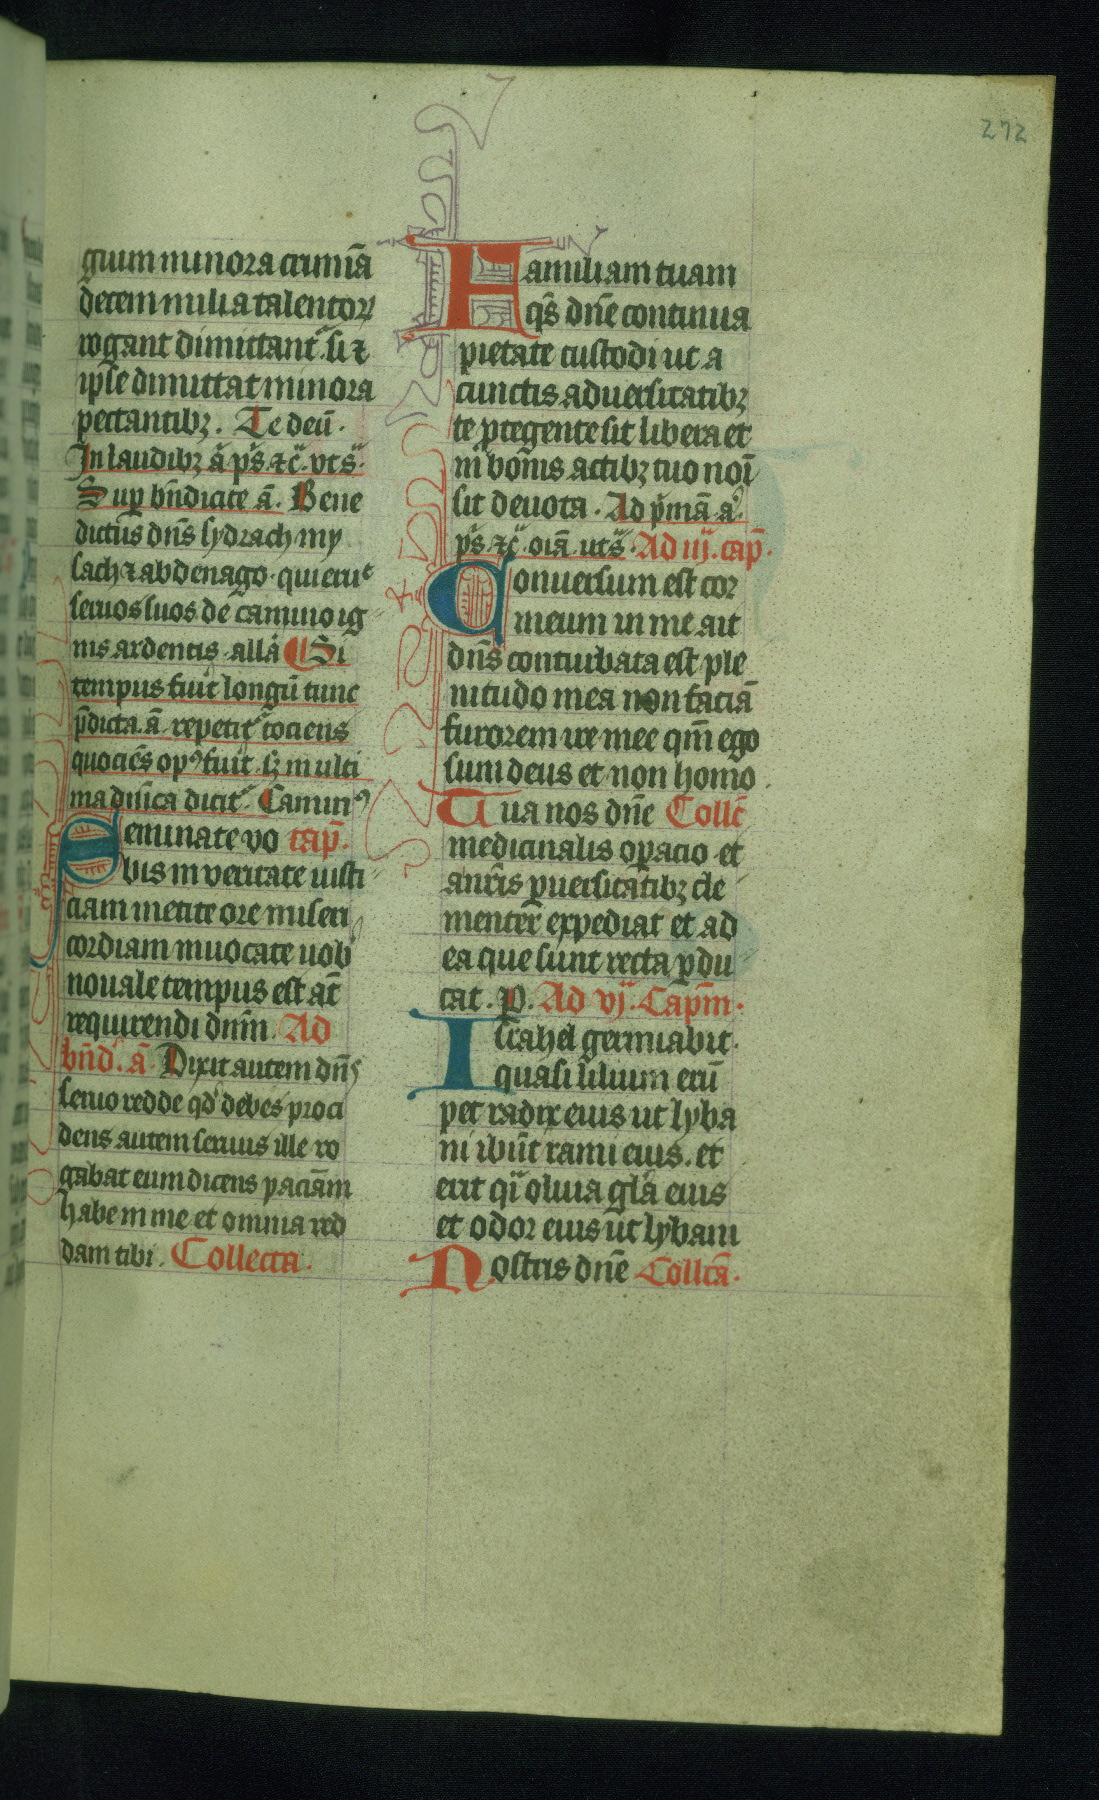 272
gium minora crimīa
decem milia talentoꝝ
rogant dimittant̄ . si ⁊
ipse dimittat minora
peccantibꝫ . Te deū .
In laudibꝫ ā p̄s ⁊c̄ . vts̄ .
Sup bn̄dicite ā . Bene
dictus dn̄s sydrach my
sach ⁊ abdenago . qui erut
seruos suos de camino ig
nis ardentis . allā Si
tempus fuit longū tunc
p̄dicta . ā . repetit̄ tociens
quociēs opꝰ fuit . sꝫ in ulti
ma diu̅ca dicit̄ . Camin9
Seminate vo cap̄ .
bis in veritate iusti
ciam metite ore miseri
cordiam inuocate uob
nouale tempus est at̄
requirendi dnm̄ . Ad
bn̄d . ā . Dixit autem dn̄s
seruo redde qd debes proci
dens autem seruus ille ro
gabat eum dicens paciām
habe in me et omnia red
dam tibi . Collecta .
Familiam tuam
qs̄ dn̄e continua
pietate custodi ut a
cunctis aduersitatibꝫ
te ꝓtegente sit libera et
in bonis actibꝫ tuo noī
sit deuota . Ad p̄mā a .
p̄s ⁊c̄ . oīa . uts̄ . Ad iij . cap̄ .
Conuersum est cor
meum in me ait
dn̄s conturbata est ple
nitudo mea non faciā
furorem ire mee qm̄ ego
sum deus et non homo .
Tua nos dn̄e Collc̄
medicinalis opacio et
an̄ris ꝑuersitatibꝫ cle
menter expediat et ad
ea que sunt recta ꝑdu
cat . P . Ad vj . Capm̄ .
Israhel germiabit .
quasi lilium erū
pet radix eius ut lyba
ni ibūt rami eius . et
erit qi oliua glā eius
et odor eius ut lybani
Nostris dn̄e Collcā .